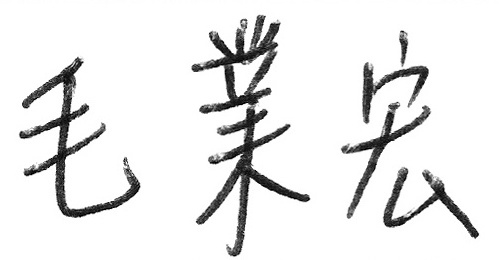 毛業宏